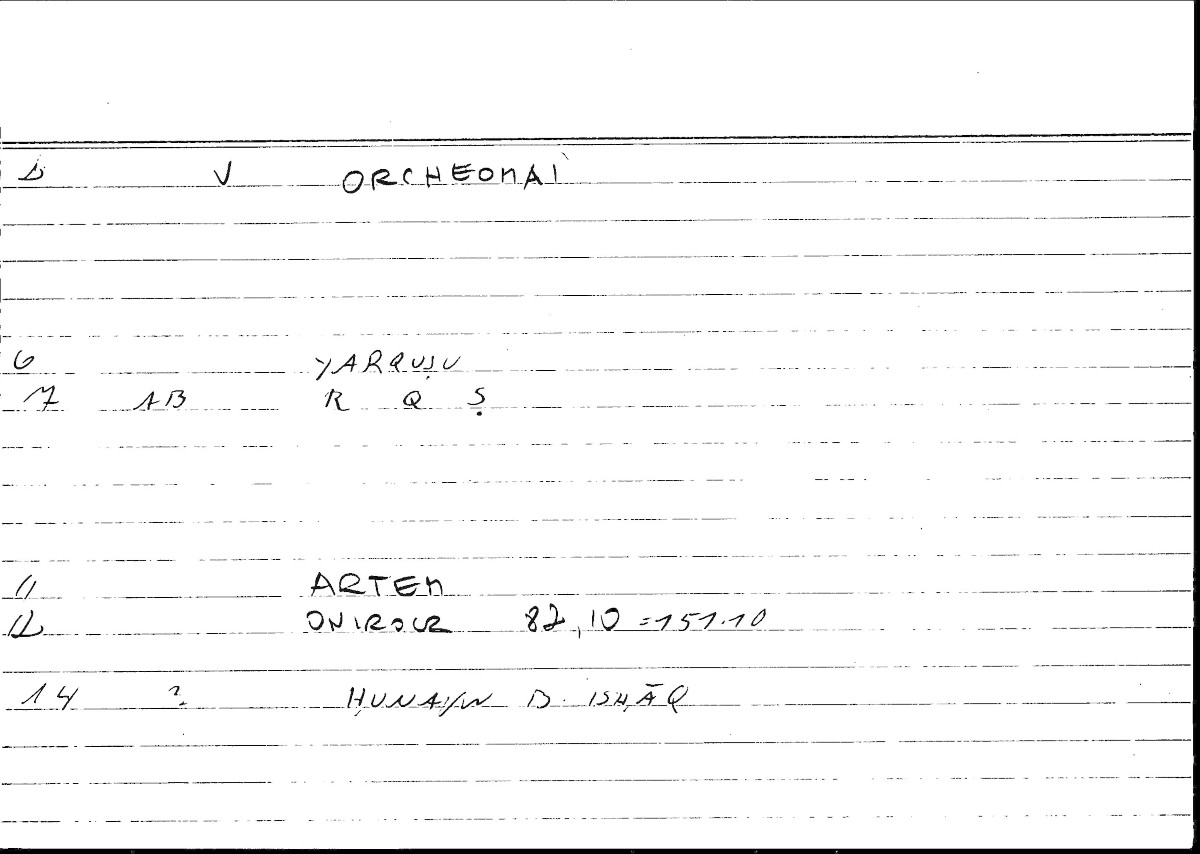 1 V ORCHEOMAI
6 YARQUṢU
7 AB R Q Ṣ
11 ARTEM
12 ONIROCR 82,10 =151.10
14 ? ḤUNAYN B. ISḤĀQ